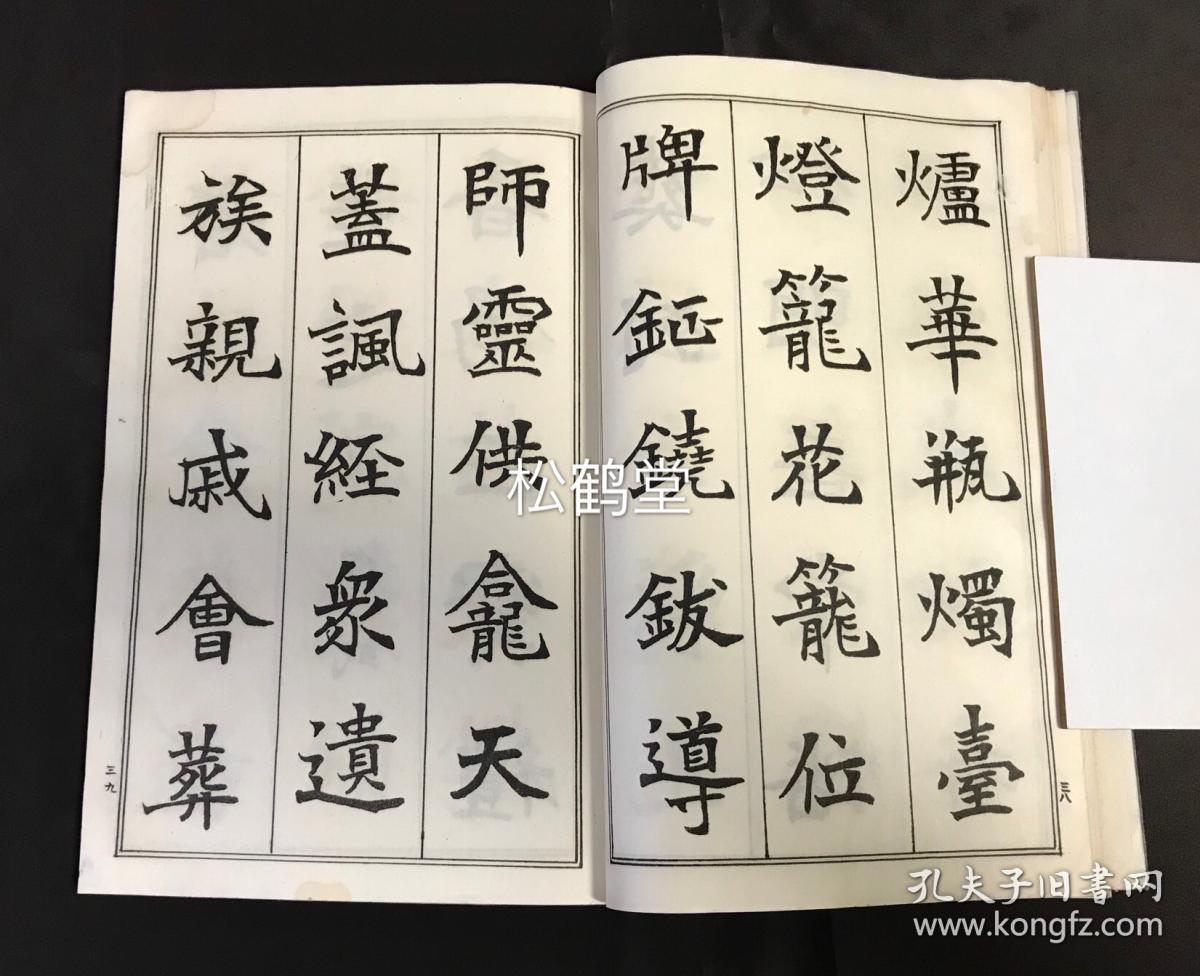 爐華瓶燭臺
燈籠花籠位
牌鉦鐃鈸導
三八
師靈供龕天
蓋諷経衆遺
族親戚會葬
三九
松鹤堂
孔夫子旧书网
www.kongfz.com